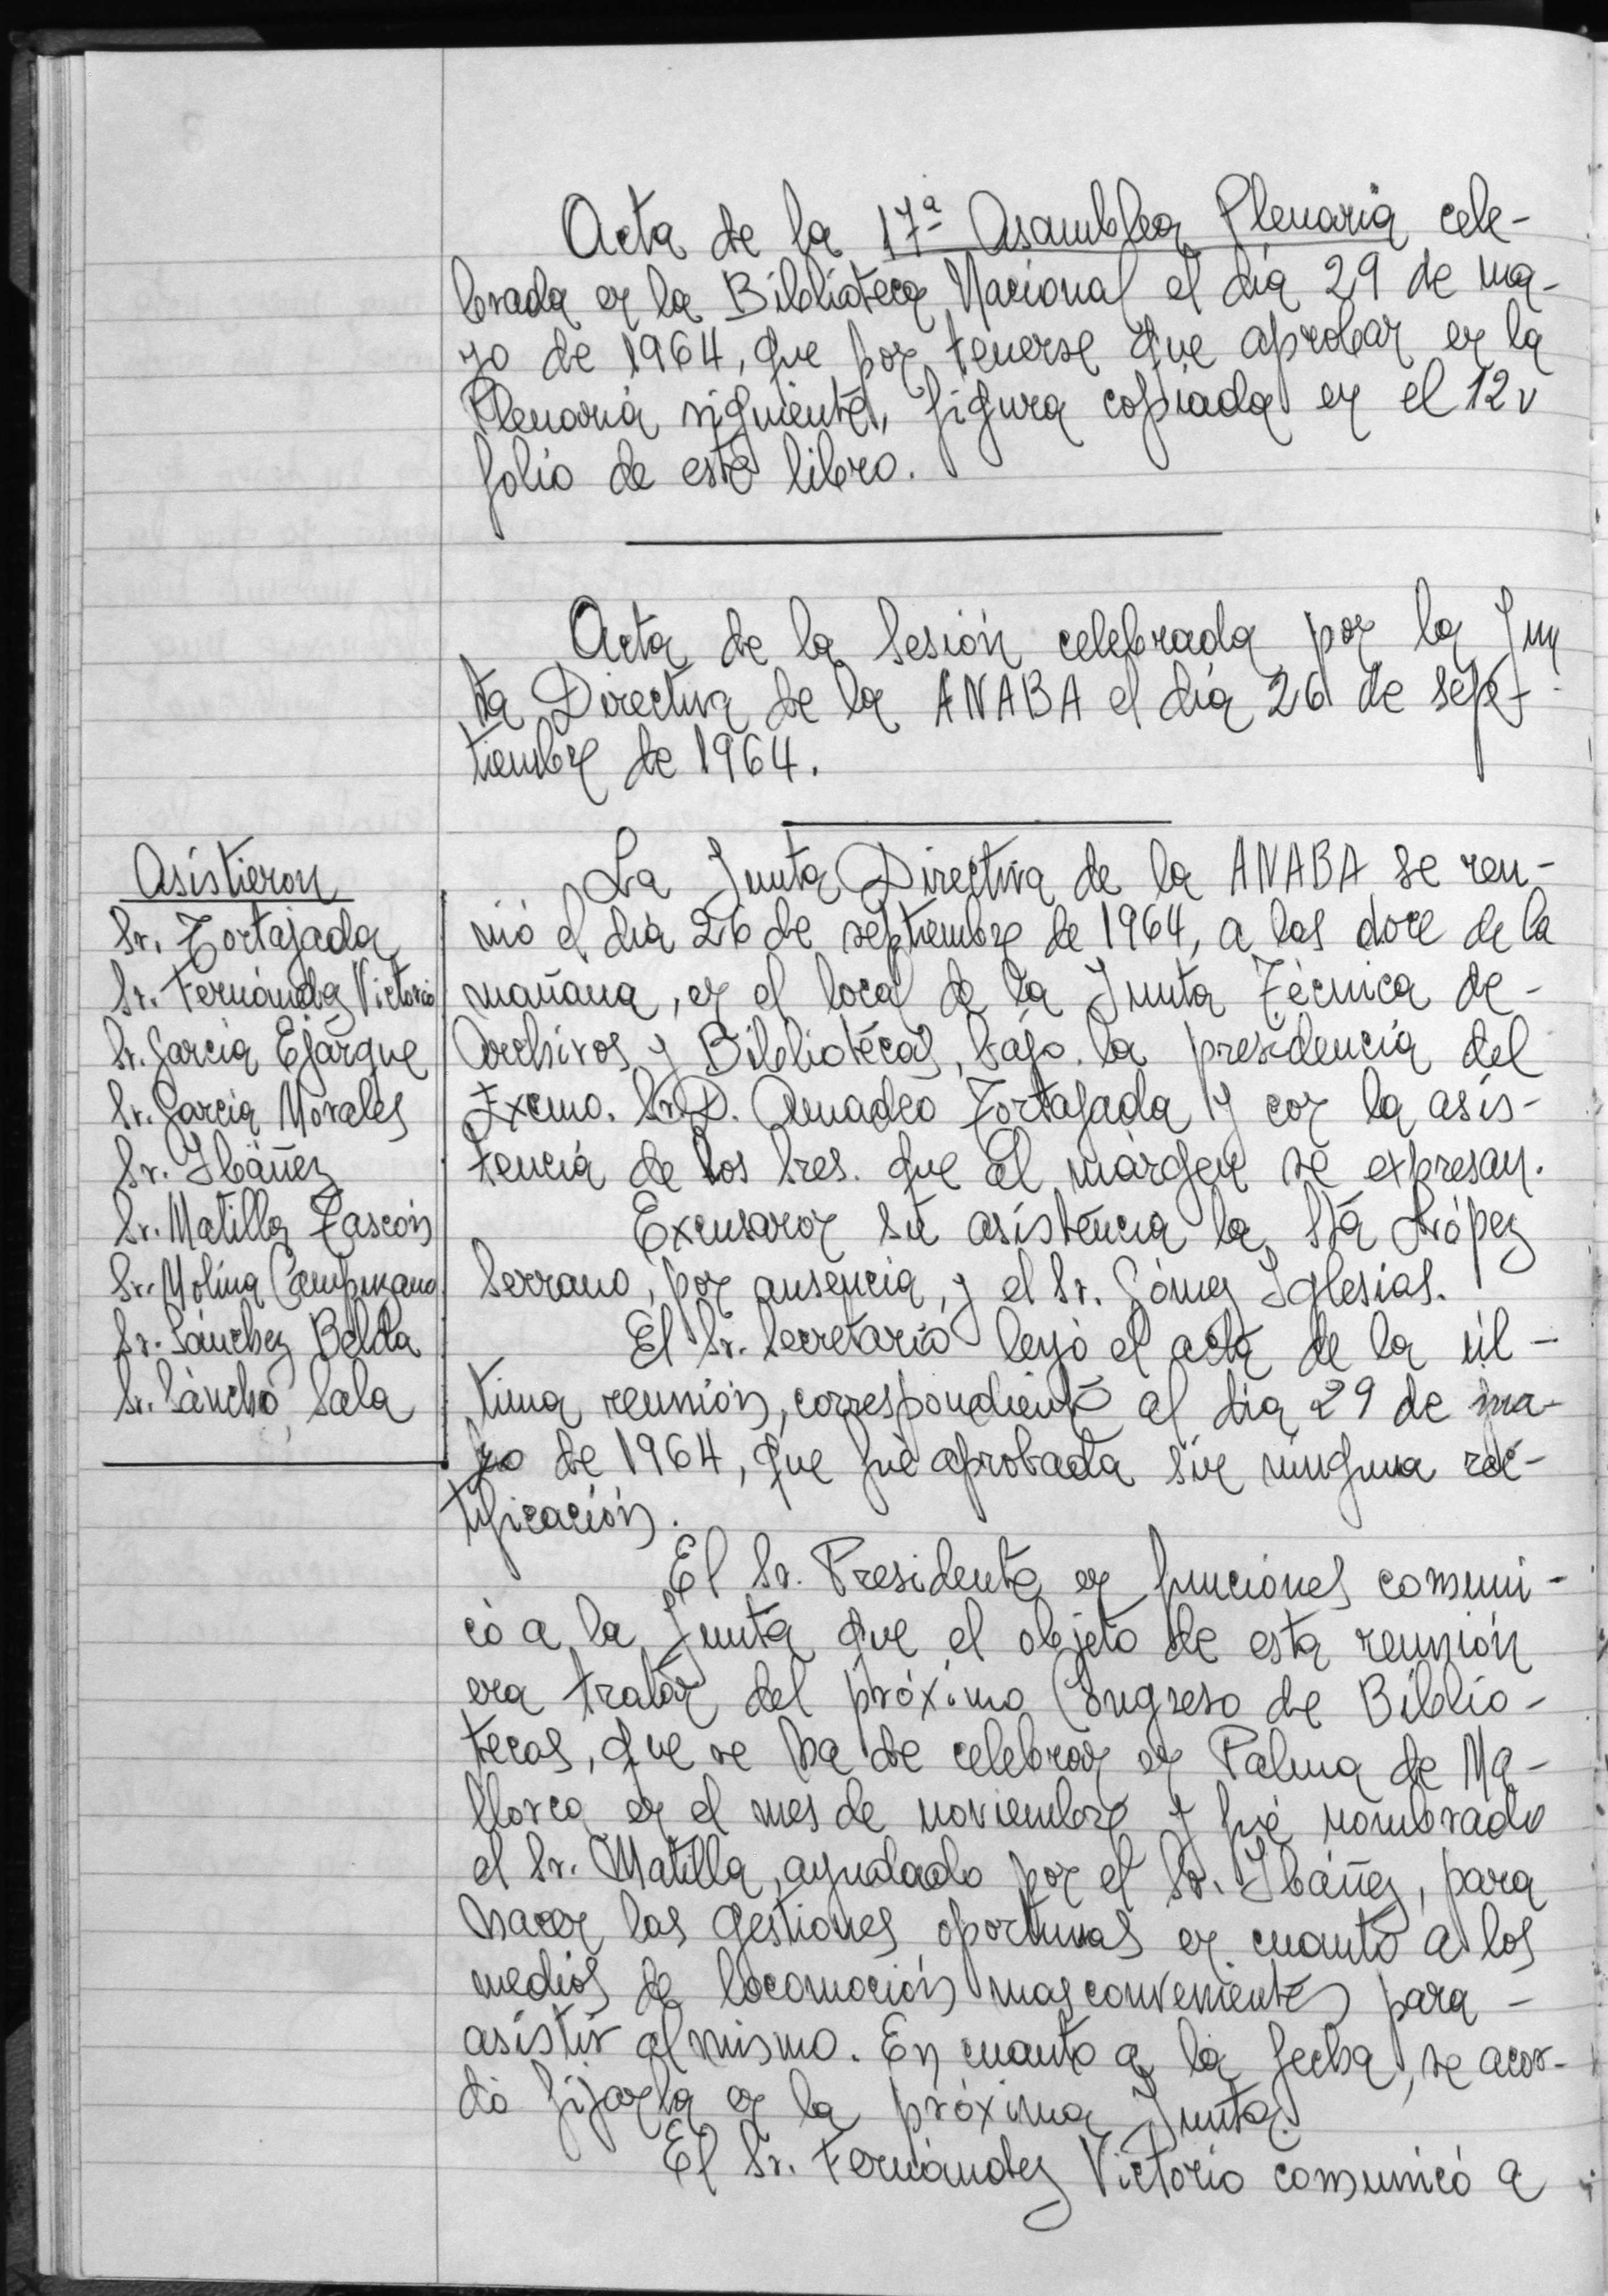 Acta de la 17ª Asamblea Plenaria cele-
brada en la Biblioteca Nacional el día 29 de ma-
yo de 1964, que por tenerse que aprobar en la
Plenaria siguiente, figura copiada en el 12 v
folio de este libro.
Acta de la Sesión celebrada por la Jun
ta Directiva de la ANABA el día 26 de sep-
tiembre de 1964.
Asistieron
Sr. Tortajada
Sr. Fernández Victorio
Sr. García Ejarque
Sr. García Morales
Sr. Ibáñez
Sr. Matilla Tascón
Sr. Molina Campuzano
Sr. Sánchez Belda
Sr. Sancho Sala
La Junta Directiva de la ANABA se reu-
nió el día 26 de septiembre de 1964, a las doce de la
mañana, en el local de la Junta Técnica de -
Archivos y Bibliotecas, bajo la presidencia del
Excmo. Sr. D. Amadeo Tortajada y con la asis-
tencia de los Sres. que al márgen se expresan.
Excusaron su asistencia la Stª López
Serrano, por ausencia, y el Sr. Gómez Iglesias.
El Sr. Secretario leyó el acta de la úl-
tima reunión, correspondiente al día 29 de ma-
yo de 1964, que fué aprobada sin ninguna rec-
tificación.
El Sr. Presidente en funciones comuni-
có a la Junta que el objeto de esta reunión
era tratar del próximo Congreso de Biblio-
tecas, que se ha de celebrar en Palma de Ma-
llorca en el mes de noviembre y fué nombrado
el Sr. Matilla, ayudado por el Sr. Ibáñez, para
hacer las gestiones oportunas en cuanto a los
medios de locomoción mas convenientes para -
asistir al mismo. En cuanto a la fecha, se acor-
dó fijarla en la próxima Junta.
El Sr. Fernández Victorio comunicó a